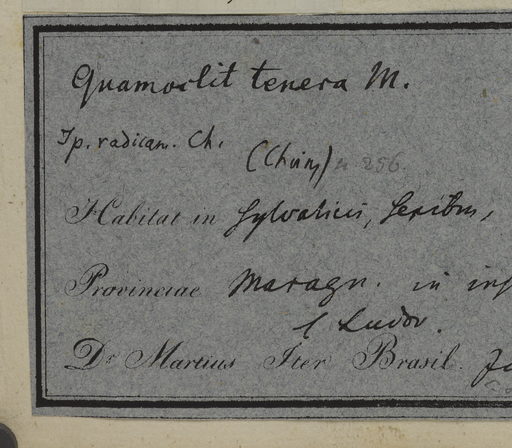 Quamoclit tenera M.
Ip. radican. Ch.
(Chois) n 256.
Habitat in sylvaticis, sepibus,
Provinciae Maragn. in ins
S Ludov.
Dr Martius Iter Brasil.